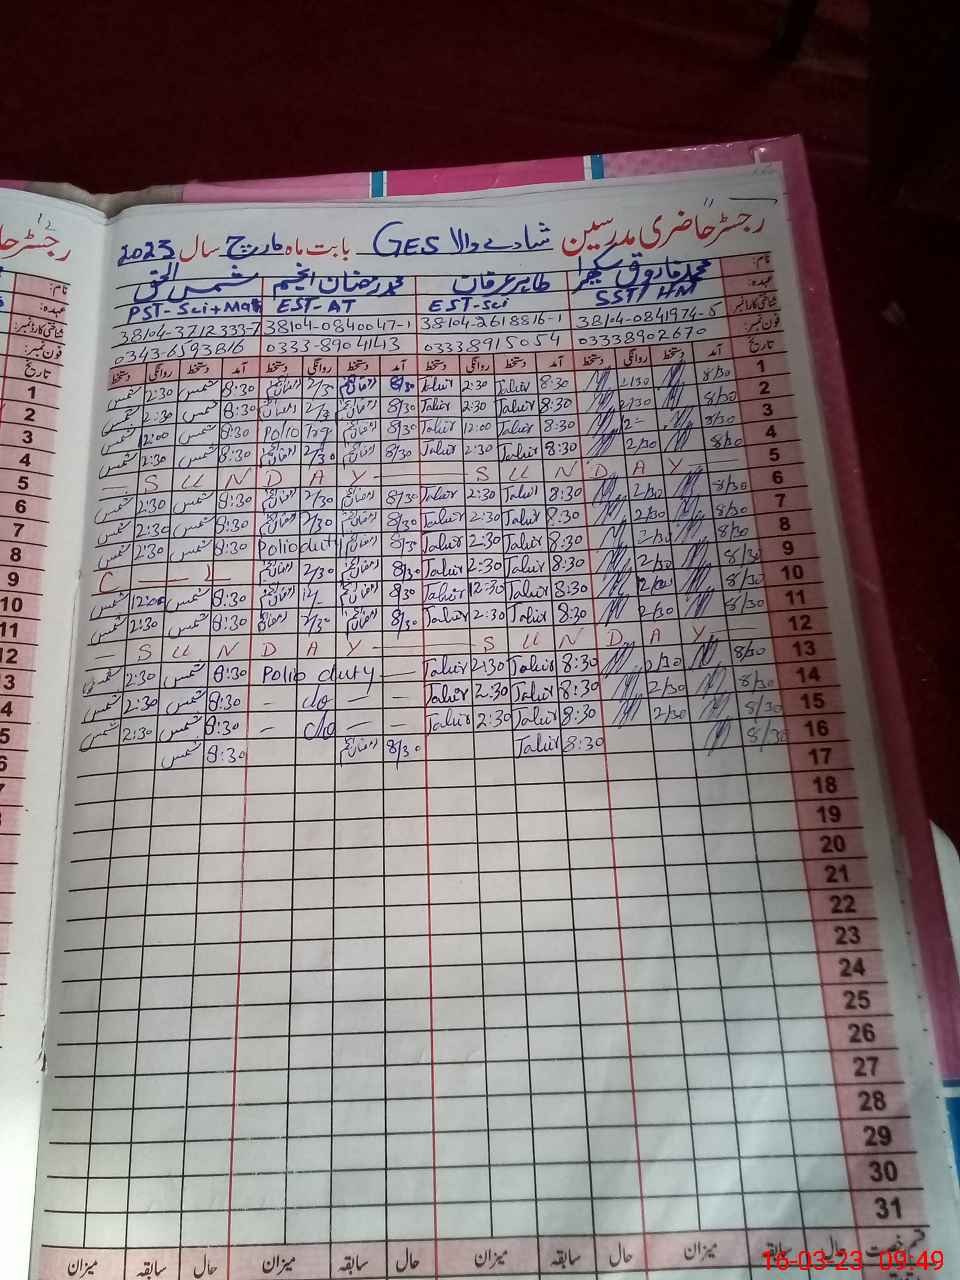 رجسٹر حاضری مدرسین شادے والا GES بابت ماہ مارچ سال 2023
نام: محمد فاروق طاہر عرفان محمد رمضان انجم شمس الحق
عہدہ: SST/HM EST-Sci EST-AT PST-Sci+Math
شناختی کارڈ نمبر 38104-0841974-5 38104-2618816-1 38104-0840047-1 38104-3712333-7
فون نمبر: 03338902670 03338915054 0333-8904143 0343-6593816
تاریخ آمد دستخط روانگی دستخط آمد دستخط روانگی دستخط آمد دستخط روانگی دستخط آمد دستخط روانگی دستخط
1 8/30 2/30 8:30 Tahir 2:30 Tahir 8/30 2/30 8:30 شمس 2:30 شمس
2 8/30 2/30 8:30 Tahir 2:30 Tahir 8/30 8:30 شمس 2:30 شمس
3 8/30 8:30 Tahir 12:00 Tahir 8/30 Polio 8:30 شمس 12:00 شمس
4 8/30 2/30 8:30 Tahir 2:30 Tahir 8/30 2/30 8:30 شمس 2:30 شمس
5 — S U N D A Y — S U N D A Y —
6 8/30 2/30 8:30 Tahir 2:30 Tahir 8/30 2/30 8:30 شمس 2:30 شمس
7 8/30 2/30 8:30 Tahir 2:30 Tahir 8/30 2/30 8:30 شمس 2:30 شمس
8 8/30 2/30 8:30 Tahir 2:30 Tahir 8/30 Polio duty 8:30 شمس 2:30 شمس
9 8/30 2/30 8:30 Tahir 2:30 Tahir 8/30 2/30 C — L
10 8/30 8:30 Tahir 12:30 Tahir 8/30 8:30 شمس 12:00 شمس
11 8/30 2/30 8:30 Tahir 2:30 Tahir 8/30 2/30 8:30 شمس 2:30 شمس
12 — S U N D A Y — S U N D A Y —
13 8/30 2/30 8:30 Tahir 2:30 Tahir Polio duty — 8:30 شمس 2:30 شمس
14 8/30 2/30 8:30 Tahir 2:30 Tahir — do — — 8:30 شمس 2:30 شمس
15 8/30 2/30 8:30 Tahir 2:30 Tahir — do — — 8:30 شمس 2:30 شمس
16 8/30 8:30 Tahir 8/30 8:30 شمس
17
18
19
20
21
22
23
24
25
26
27
28
29
30
31
قسم رخصت حال سابقہ میزان حال سابقہ میزان حال سابقہ میزان حال سابقہ میزان
16-03-23 09:49
12
رجسٹر حا
نام:
عہدہ:
شناختی کارڈ نمبر
فون نمبر:
تاریخ
1
2
3
4
5
6
7
8
9
10
11
12
13